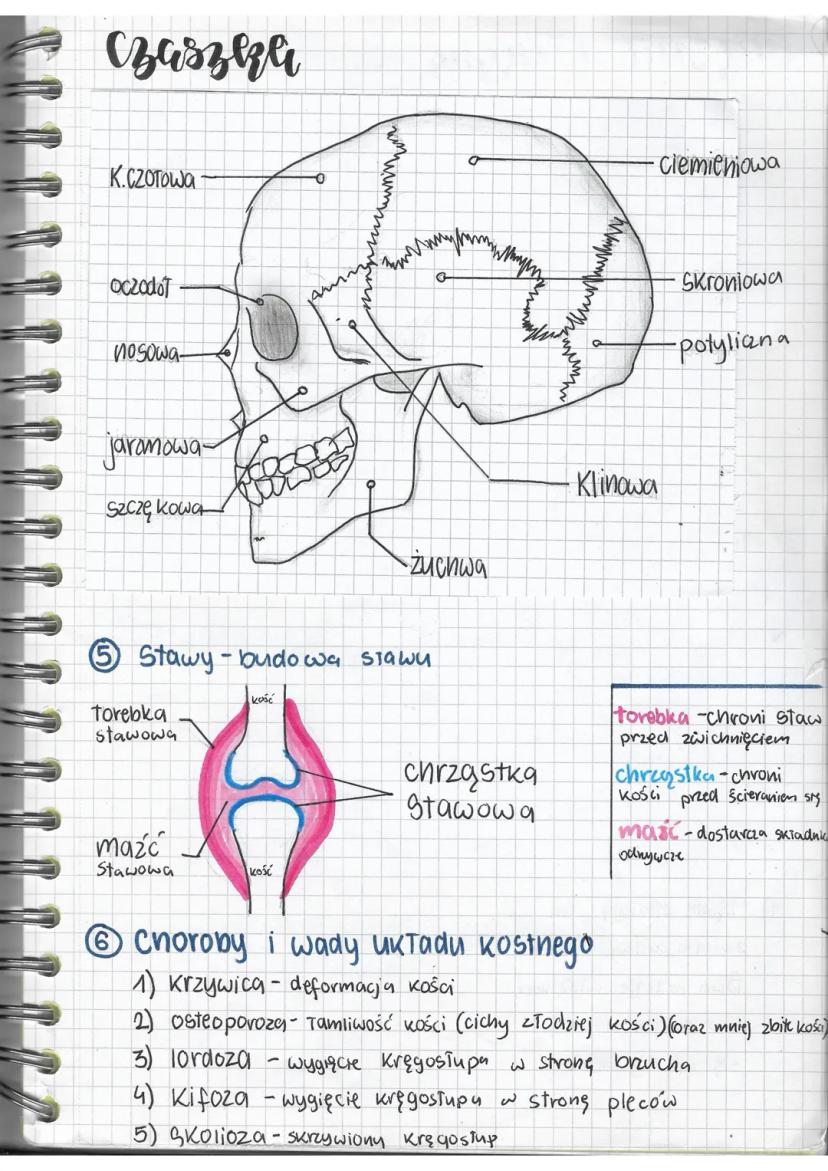 Czaszka
K.czołowa
ciemieniowa
oczodół
skroniowa
nosowa
potyliczna
jarzmowa
klinowa
szczękowa
żuchwa
5 Stawy - budowa stawu
kość
torebka
stawowa
chrząstka
stawowa
maźć
stawowa
kość
torebka - chroni staw
przed zwichnięciem
chrząstka - chroni
kości przed ścieraniem się
maźć - dostarcza składnik
odżywcze
6 Choroby i wady układu kostnego
1) krzywica - deformacja kości
2) osteoporoza - łamliwość kości (cichy złodziej kości) (oraz mniej zbite kości)
3) lordoza - wygięcie kręgosłupa w stronę brzucha
4) kifoza - wygięcie kręgosłupa w stronę pleców
5) skolioza - skrzywiony kręgosłup